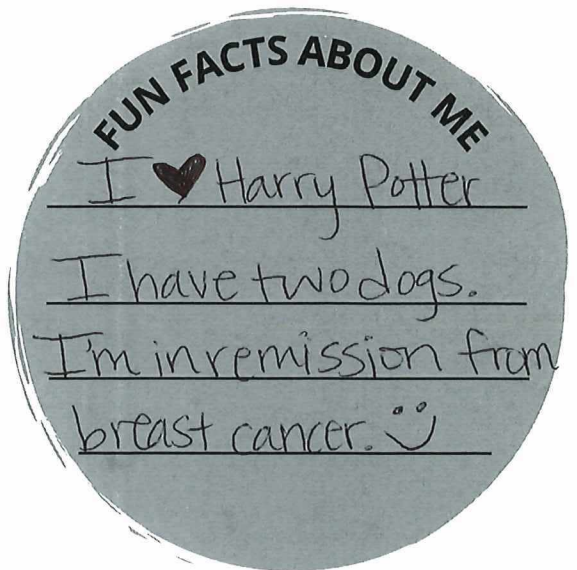 FUN FACTS ABOUT ME
I ♥ Harry Potter
I have two dogs.
I'm in remission from
breast cancer. :)